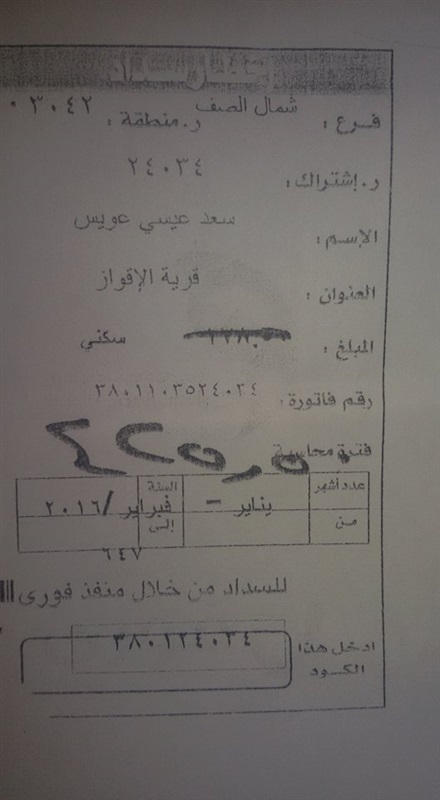 إيصال سداد
فرع : شمال الصف
ر.منطقة : ٠٣٠٤٢
ر.إشتراك : ٢٤٠٣٤
الإسم : سعد عيسي عويس
العنوان : قرية الإقواز
المبلغ : سكني
رقم فاتورة : ٣٨٠١١٠٣٥٢٤٠٣٤
فترة محاسبة
عدد أشهر السنة
يناير - فبراير /٢٠١٦
من إلى
٦٤٧
للسداد من خلال منفذ فورى
ادخل هذا الكود ٣٨٠١٢٤٠٣٤